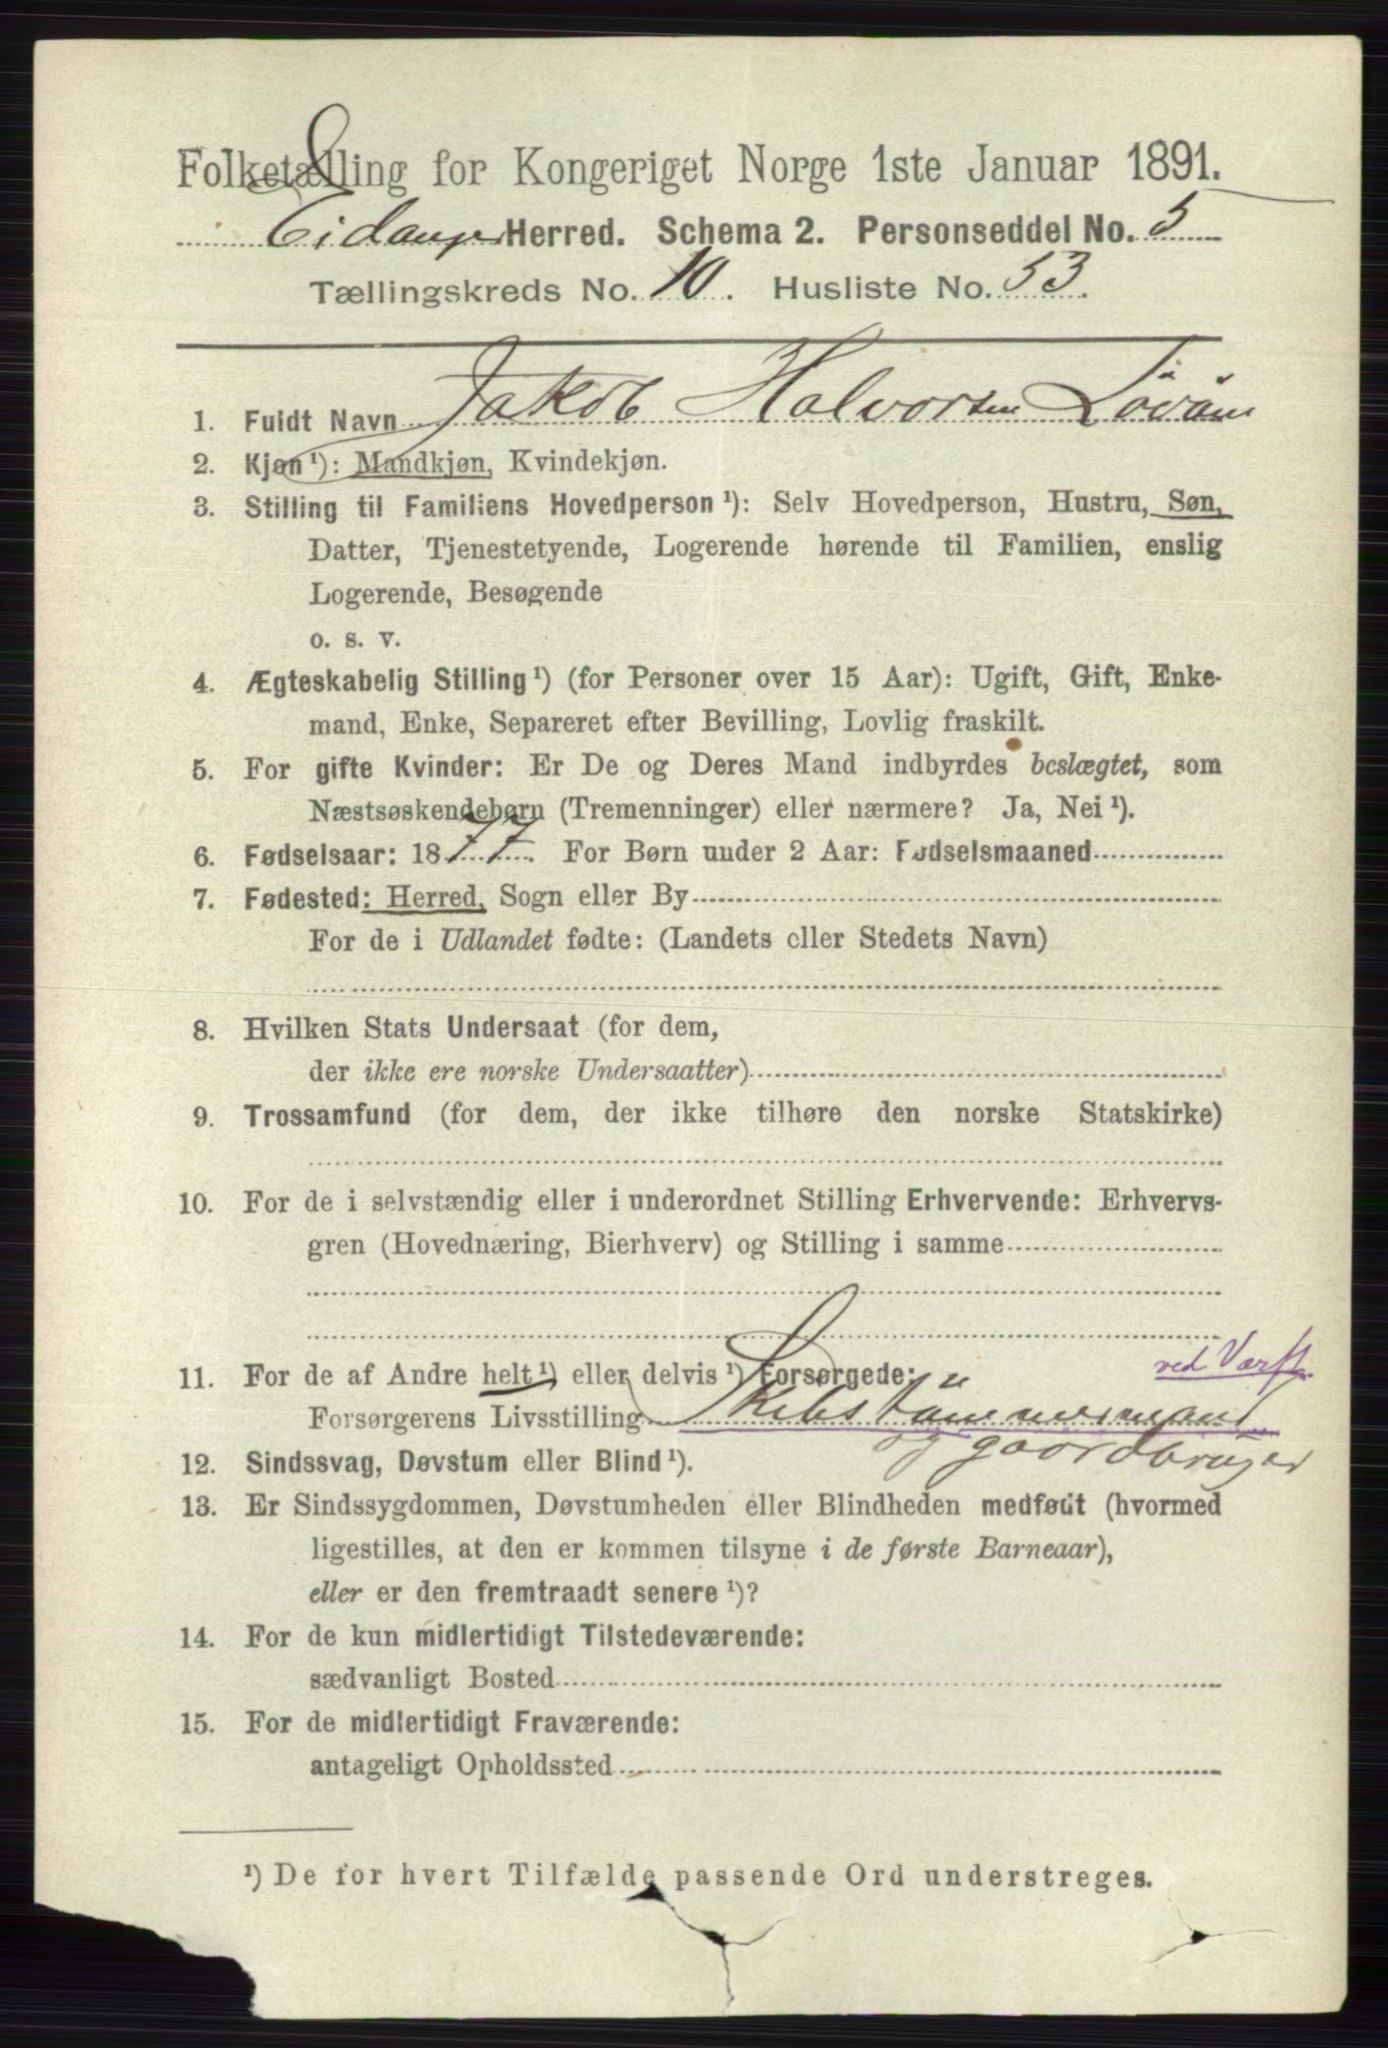 Folketælling for Kongeriget Norge 1ste Januar 1891.
Eidanger Herred. Schema 2. Personseddel No. 5
Tællingskreds No. 10. Husliste No. 53.
1. Fuldt Navn Jakob Halvorsen
2. Kjøn ¹): Mandkjøn, Kvindekjøn.
3. Stilling til Familiens Hovedperson ¹): Selv Hovedperson, Hustru, Søn,
Datter, Tjenestetyende, Logerende hørende til Familien, enslig
Logerende, Besøgende
o. s. v.
4. Ægteskabelig Stilling ¹) (for Personer over 15 Aar): Ugift, Gift, Enke-
mand, Enke, Separeret efter Bevilling, Lovlig fraskilt.
5. For gifte Kvinder: Er De og Deres Mand indbyrdes beslægtet, som
Næstsøskendebørn (Tremenninger) eller nærmere? Ja, Nei ¹).
6. Fødselsaar: 1877. For Børn under 2 Aar: Fødselsmaaned
7. Fødested: Herred, Sogn eller By
For de i Udlandet fødte: (Landets eller Stedets Navn)
8. Hvilken Stats Undersaat (for dem,
der ikke ere norske Undersaatter)
9. Trossamfund (for dem, der ikke tilhøre den norske Statskirke)
10. For de i selvstændig eller i underordnet Stilling Erhvervende: Erhvervs-
gren (Hovednæring, Bierhverv) og Stilling i samme
11. For de af Andre helt ¹) eller delvis ¹) Forsørgede: ved Værft.
Forsørgerens Livsstilling Skibstömmermand
og gaardbruger
12. Sindssvag, Døvstum eller Blind ¹).
13. Er Sindssygdommen, Døvstumheden eller Blindheden medfødt (hvormed
ligestilles, at den er kommen tilsyne i de første Barneaar),
eller er den fremtraadt senere ¹)?
14. For de kun midlertidigt Tilstedeværende:
sædvanligt Bosted
15. For de midlertidigt Fraværende:
antageligt Opholdssted
¹) De for hvert Tilfælde passende Ord understreges.